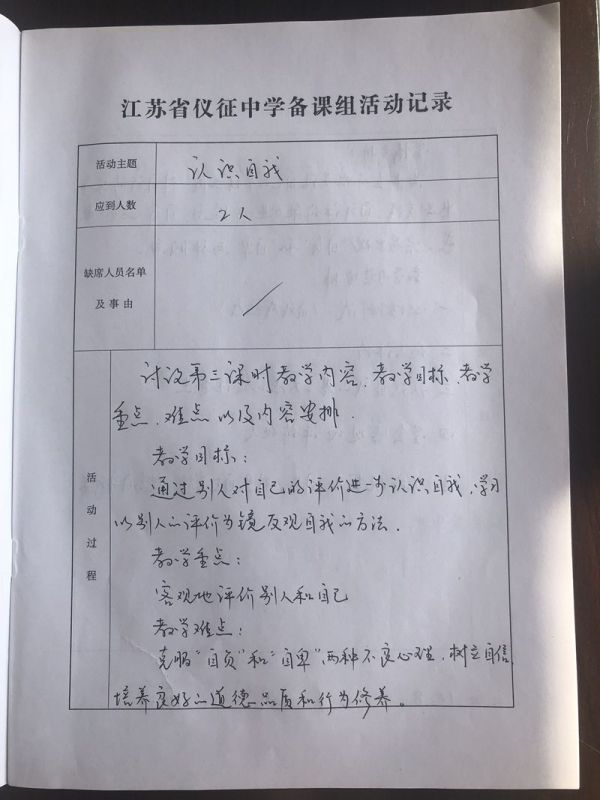 江苏省仪征中学备课组活动记录
活动主题
认识自我
应到人数
2人
缺席人员名单
及事由
活动过程
讨议第三课时教学内容、教学目标、教学
重点、难点以及内容安排.
教学目标：
通过别人对自己的评价进一步认识自我，学习
以别人的评价为镜反观自我的方法.
教学重点：
客观地评价别人和自己
教学难点：
克服“自负”和“自卑”两种不良心理，树立自信
培养良好的道德品质和行为修养。